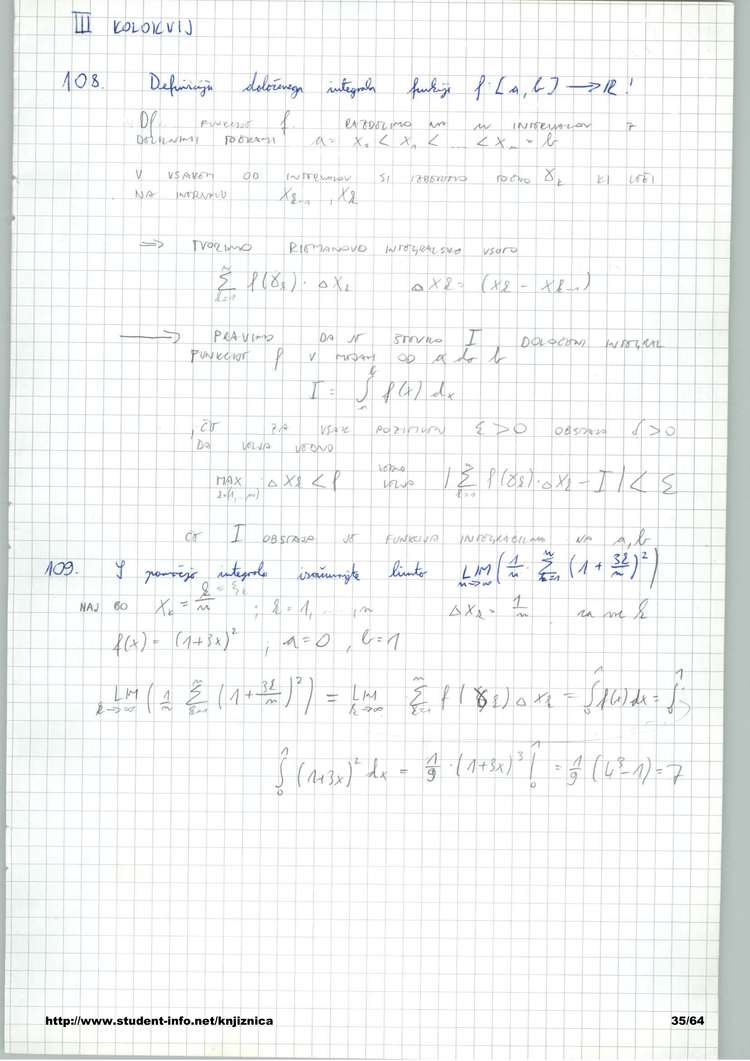 III KOLOKVIJ
108. Definicija določenega integrala funkcije f: [a, b] → R!
Df. FUNKCIJO f RAZDELIMO NA n INTERVALOV Z
DELILNIMI TOČKAMI a = x₀ < x₁ < ... < xₙ = b
V VSAKEM OD INTERVALOV SI IZBEREMO TOČKO γₖ KI LEŽI
NA INTERVALU xₖ₋₁, xₖ
⇒ TVORIMO RIEMANOVO INTEGRALSKO VSOTO
∑ₖ₌₁ⁿ f(γₖ) · Δxₖ Δxₖ = (xₖ - xₖ₋₁)
→ PRAVIMO DA JE ŠTEVILO I DOLOČENI INTEGRAL
FUNKCIJE f V MEJAH OD a do b
I = ∫ₐᵇ f(x) dx
, ČE ZA VSAK POZITIVEN ε > 0 OBSTAJA δ > 0
DA VELJA VEDNO
MAX Δxₖ < δ VEDNO VELJA |∑ₖ₌₁ⁿ f(γₖ) · Δxₖ - I| < ε
ČE I OBSTAJA JE FUNKCIJA INTEGRABILNA NA a, b
109. S pomočjo integrala izračunajte limito LIM n→∞ (1/n · ∑ₖ₌₁ⁿ (1 + 3k/n)²)
NAJ BO xₖ = k/n = ξₖ ; k = 1, ..., n Δxₖ = 1/n za vse k
f(x) = (1+3x)² ; a = 0 , b = 1
LIM k→∞ (1/n ∑ₖ₌₁ⁿ (1 + 3k/n)²) = LIM k→∞ ∑ₖ₌₁ⁿ f(γₖ) Δxₖ = ∫₀¹ f(x) dx = ∫₀¹
∫₀¹ (1+3x)² dx = 1/9 · (1+3x)³ |₀¹ = 1/9 (4³-1) = 7
http://www.student-info.net/knjiznica 35/64